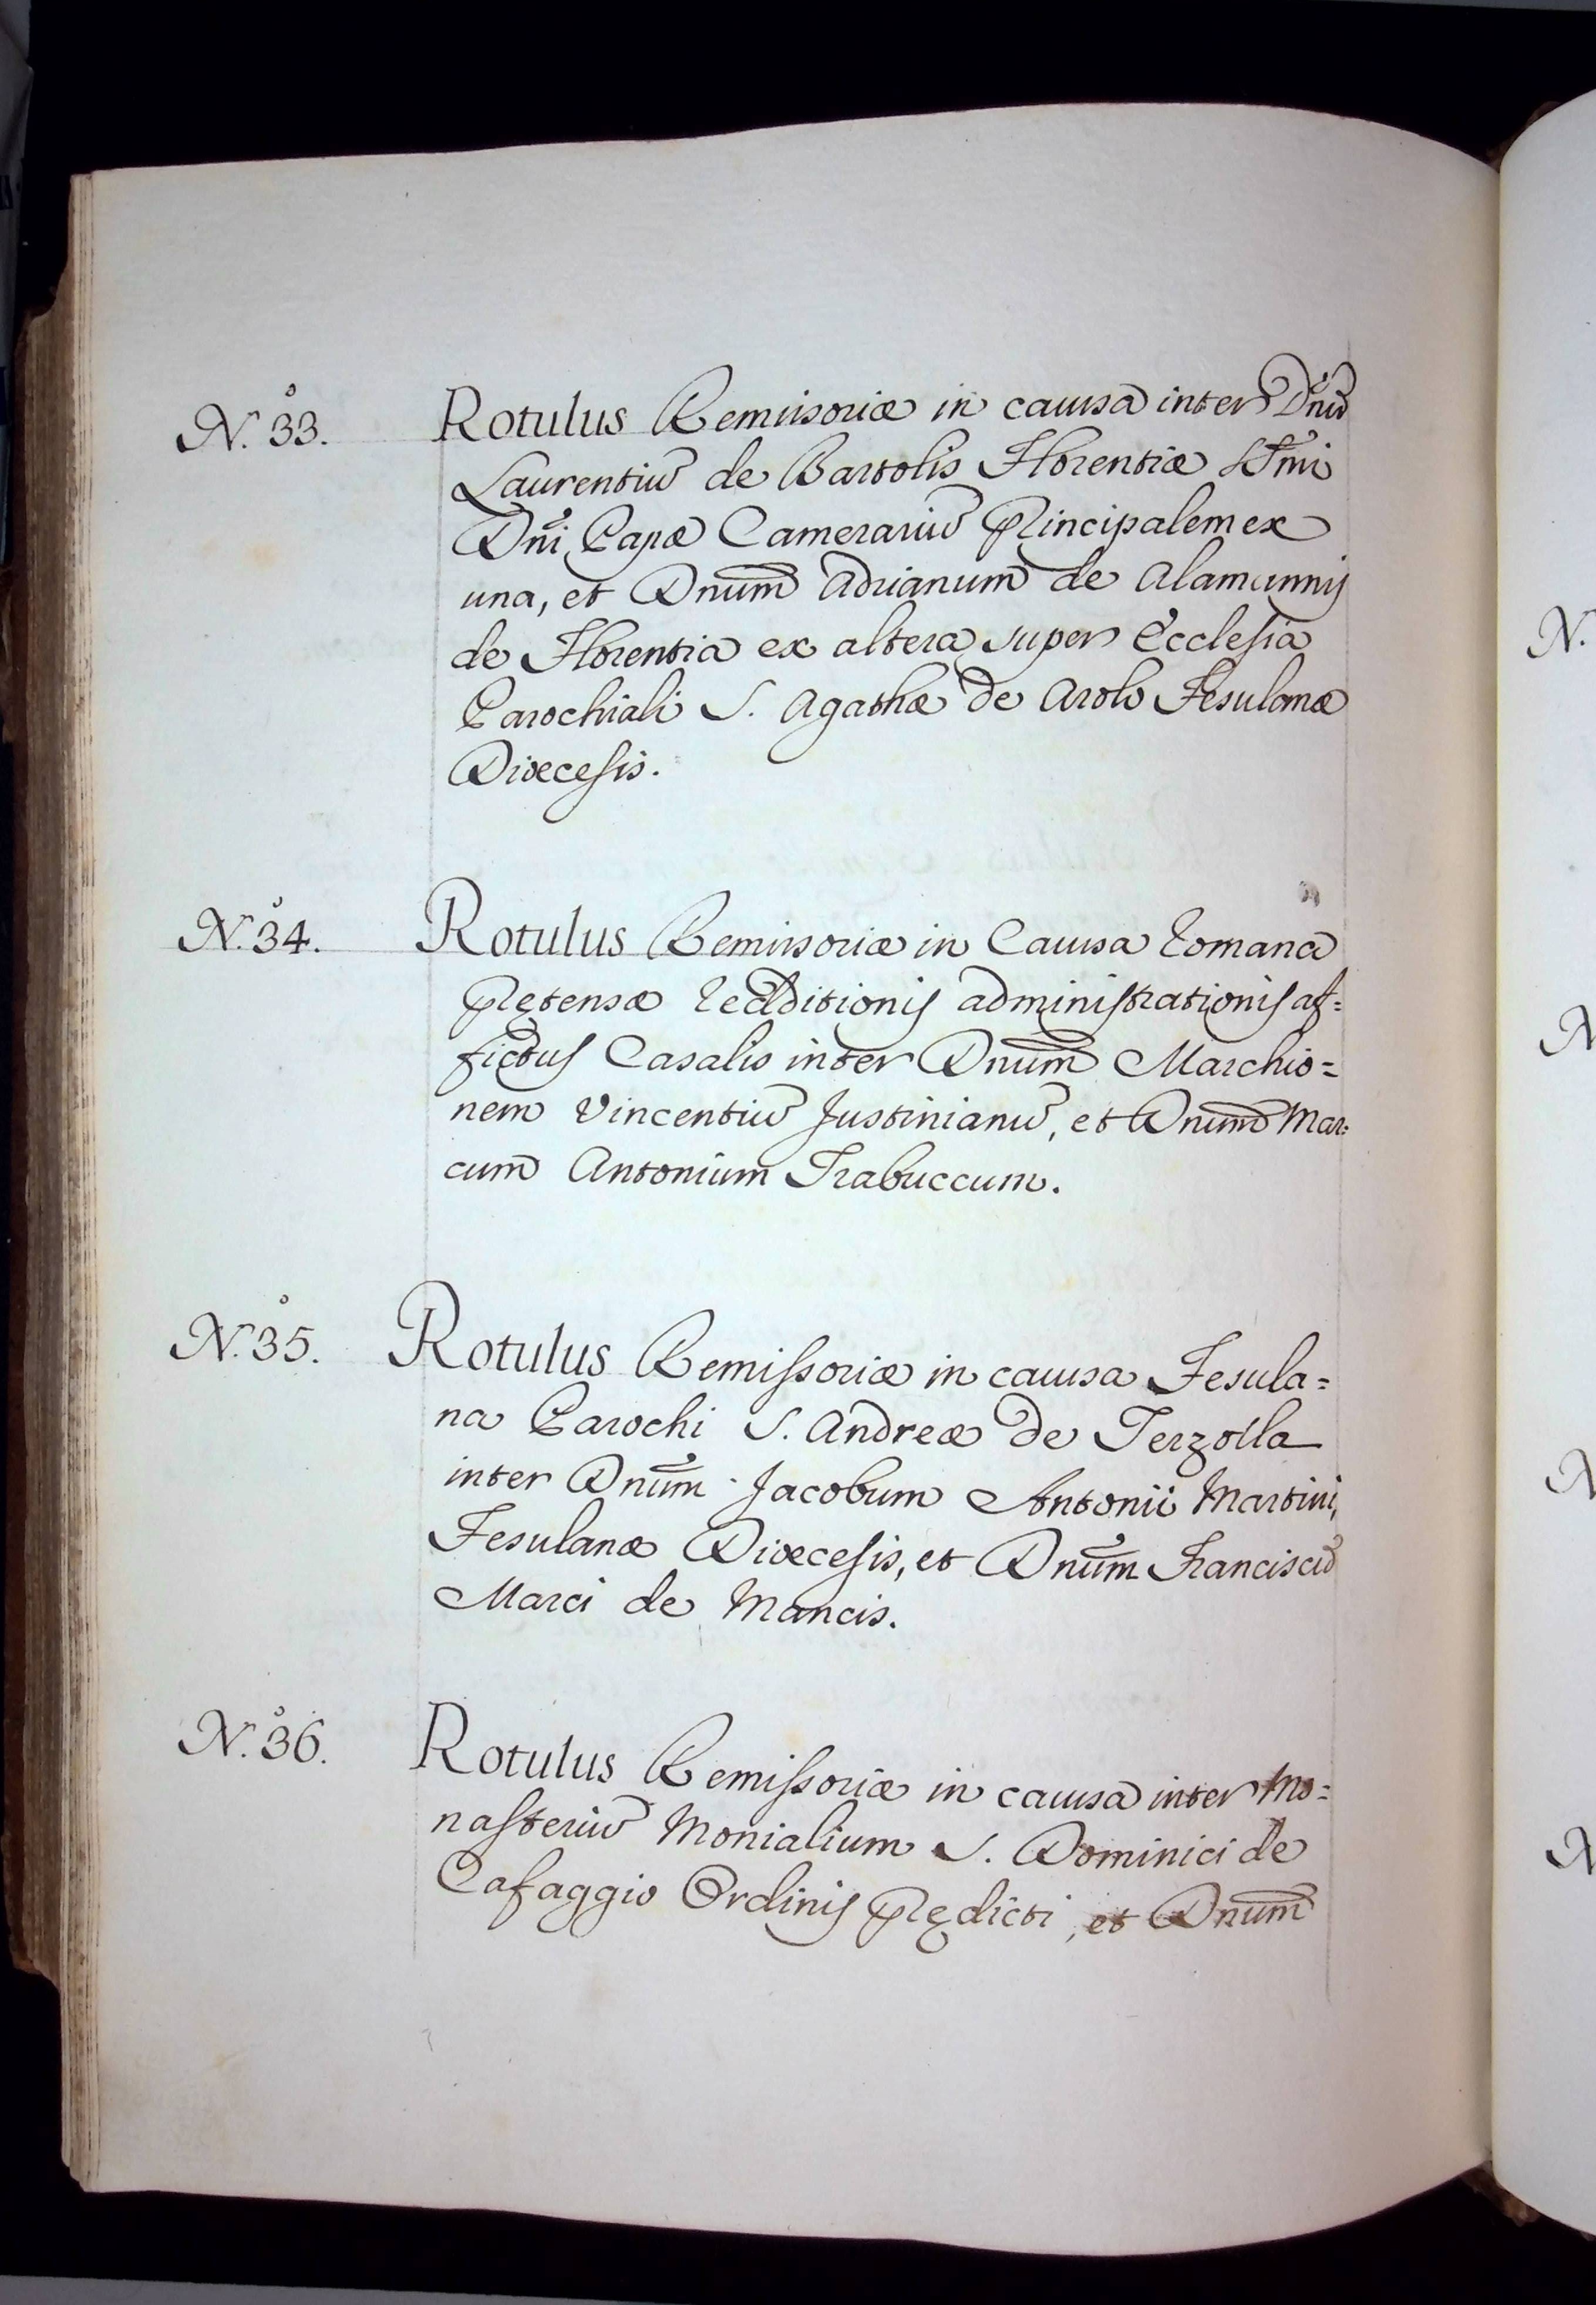 N.° 33. Rotulus Remissoriæ in causa inter Dnū
Laurentiū de Bartolis Florentiæ SSm̃i
Dñi Papæ Camerariū Principalem ex
una, et Dnum̃ Adrianum de Alamannis
de Florentia ex altera super Ecclesia
Parochiali S. Agathæ de Arolo Fesulanæ
Diœcesis.
N.° 34. Rotulus Remissoriæ in Causa Romana
Prętensæ Redditionis administrationis af=
fictus Casalis inter Dnum̃ Marchio=
nem Vincentiū Justinianū, et Dnum̃ Mar=
cum Antonium Trabuccum.
N.° 35. Rotulus Remissoriæ in causa Fesula=
na Parochi S. Andreæ de Terzolla
inter Dnum̃ Jacobum Antonii Martini,
Fesulanæ Diœcesis, et Dnum̃ Franciscū
Marci de Mancis.
N.° 36. Rotulus Remissoriæ in causa inter Mo=
nasteriū Monialium S. Dominici de
Cafaggio Ordinis Prędicti, et Dnum̃
N.
N
N
N